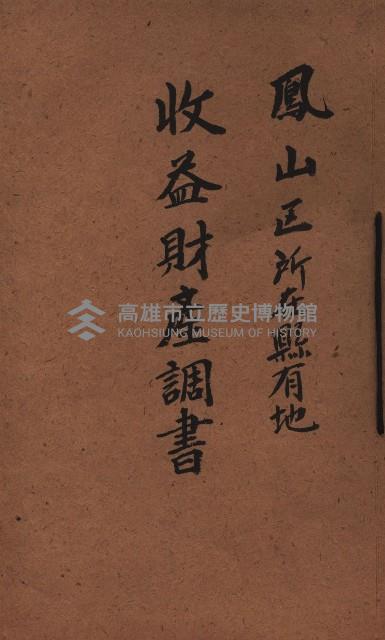 鳳山区所在縣有地
收益財產調書
高雄市立歷史博物館
KAOHSIUNG MUSEUM OF HISTORY